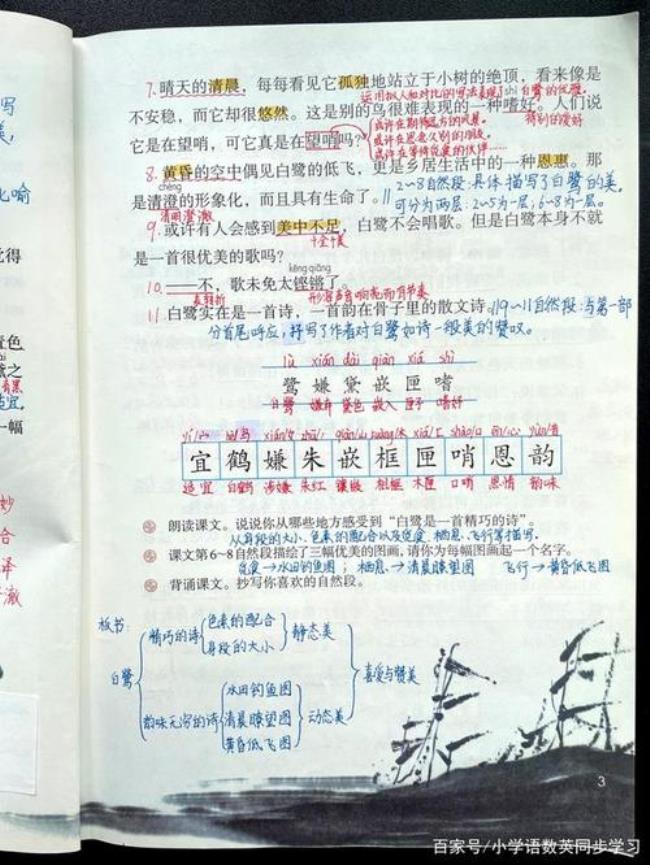 写
美,
比喻
觉得
青色
宜,
一幅
妙
合
泽
澈
7.晴天的清晨,每每看见它孤独地站立于小树的绝顶,看来像是
运用拟人和对比的写法表现了白鹭的优雅。
shì
不安稳,而它却很悠然。这是别的鸟很难表现的一种嗜好。人们说
特别的爱好
或许在期待远方的风景。
它是在望哨,可它真是在望哨吗?
或许在思念久别的朋友。
或许在等待觅食的伙伴……
8.黄昏的空中偶见白鹭的低飞,更是乡居生活中的一种恩惠。那
chéng
是清澄的形象化,而且具有生命了。
清明澄澈
2~8自然段:具体描写了白鹭的美,
可分为两层:2~5为一层;6~8为一层。
9.或许有人会感到美中不足,白鹭不会唱歌。但是白鹭本身不就
十全十美
是一首很优美的歌吗?
kēng qiāng
10.——不,歌未免太铿锵了。
表转折
形容声音响亮而有节奏
11.白鹭实在是一首诗,一首韵在骨子里的散文诗。
9~11自然段:与第一部
分首尾呼应,抒写了作者对白鹭如诗一般美的赞叹。
lù xián dài qiàn xiá shì
鹭 嫌 黛 嵌 匣 嗜
白鹭 嫌弃 黛色 嵌入 匣子 嗜好
宜 鹤 嫌 朱 嵌 框 匣 哨 恩 韵
适宜 白鹤 涉嫌 朱红 镶嵌 相框 木匣 口哨 恩情 韵味
朗读课文。说说你从哪些地方感受到“白鹭是一首精巧的诗”。
从身段的大小、色素的配合以及觅食、栖息、飞行等描写。
课文第6~8自然段描绘了三幅优美的图画,请你为每幅图画起一个名字。
觅食→水田钓鱼图; 栖息→清晨瞭望图 飞行→黄昏低飞图
背诵课文。抄写你喜欢的自然段。
板书:
白鹭
精巧的诗
色素的配合
身段的大小
静态美
韵味无穷的诗
水田钓鱼图
清晨瞭望图
黄昏低飞图
动态美
喜爱与赞美
3
百家号/小学语数英同步学习